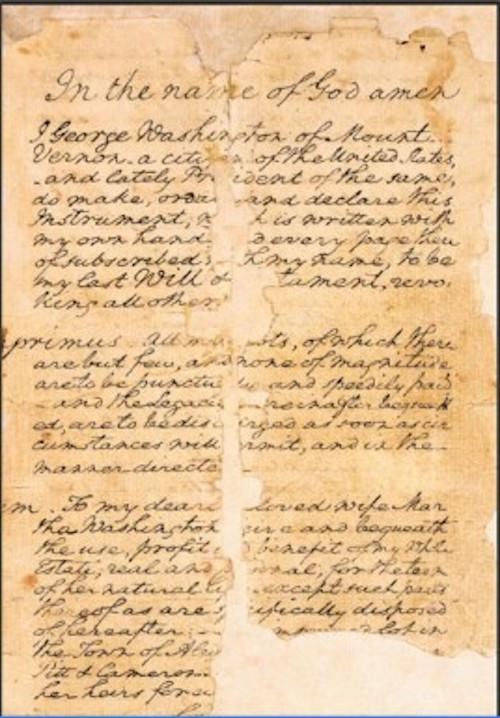 In the name of God amen
I George Washington of Mount
Vernon - a citizen of the United States,
and lately President of the same,
do make, orda and declare this
Instrument, w h is written with
my own hand d every page there
of subscribed h my name, to be
my last Will & tament, revo
king all others
primus All my bts, of which there
are but few, and none of magnitude
are to be punctu ly and speedily paid
and the Legacie reinafter bequeath
ed, are to be dis arged as soon as cir
cumstances will permit, and in the
manner directe
m. To my dear loved wife Mar
tha Washington give and bequeath
the use, profit benefit of my whole
Estate, real and onal, for the term
of her natural li except such parts
thereof as are s cifically disposed
of hereafter: lot in
the Town of Alex
Pitt & Cameron
her heirs forev